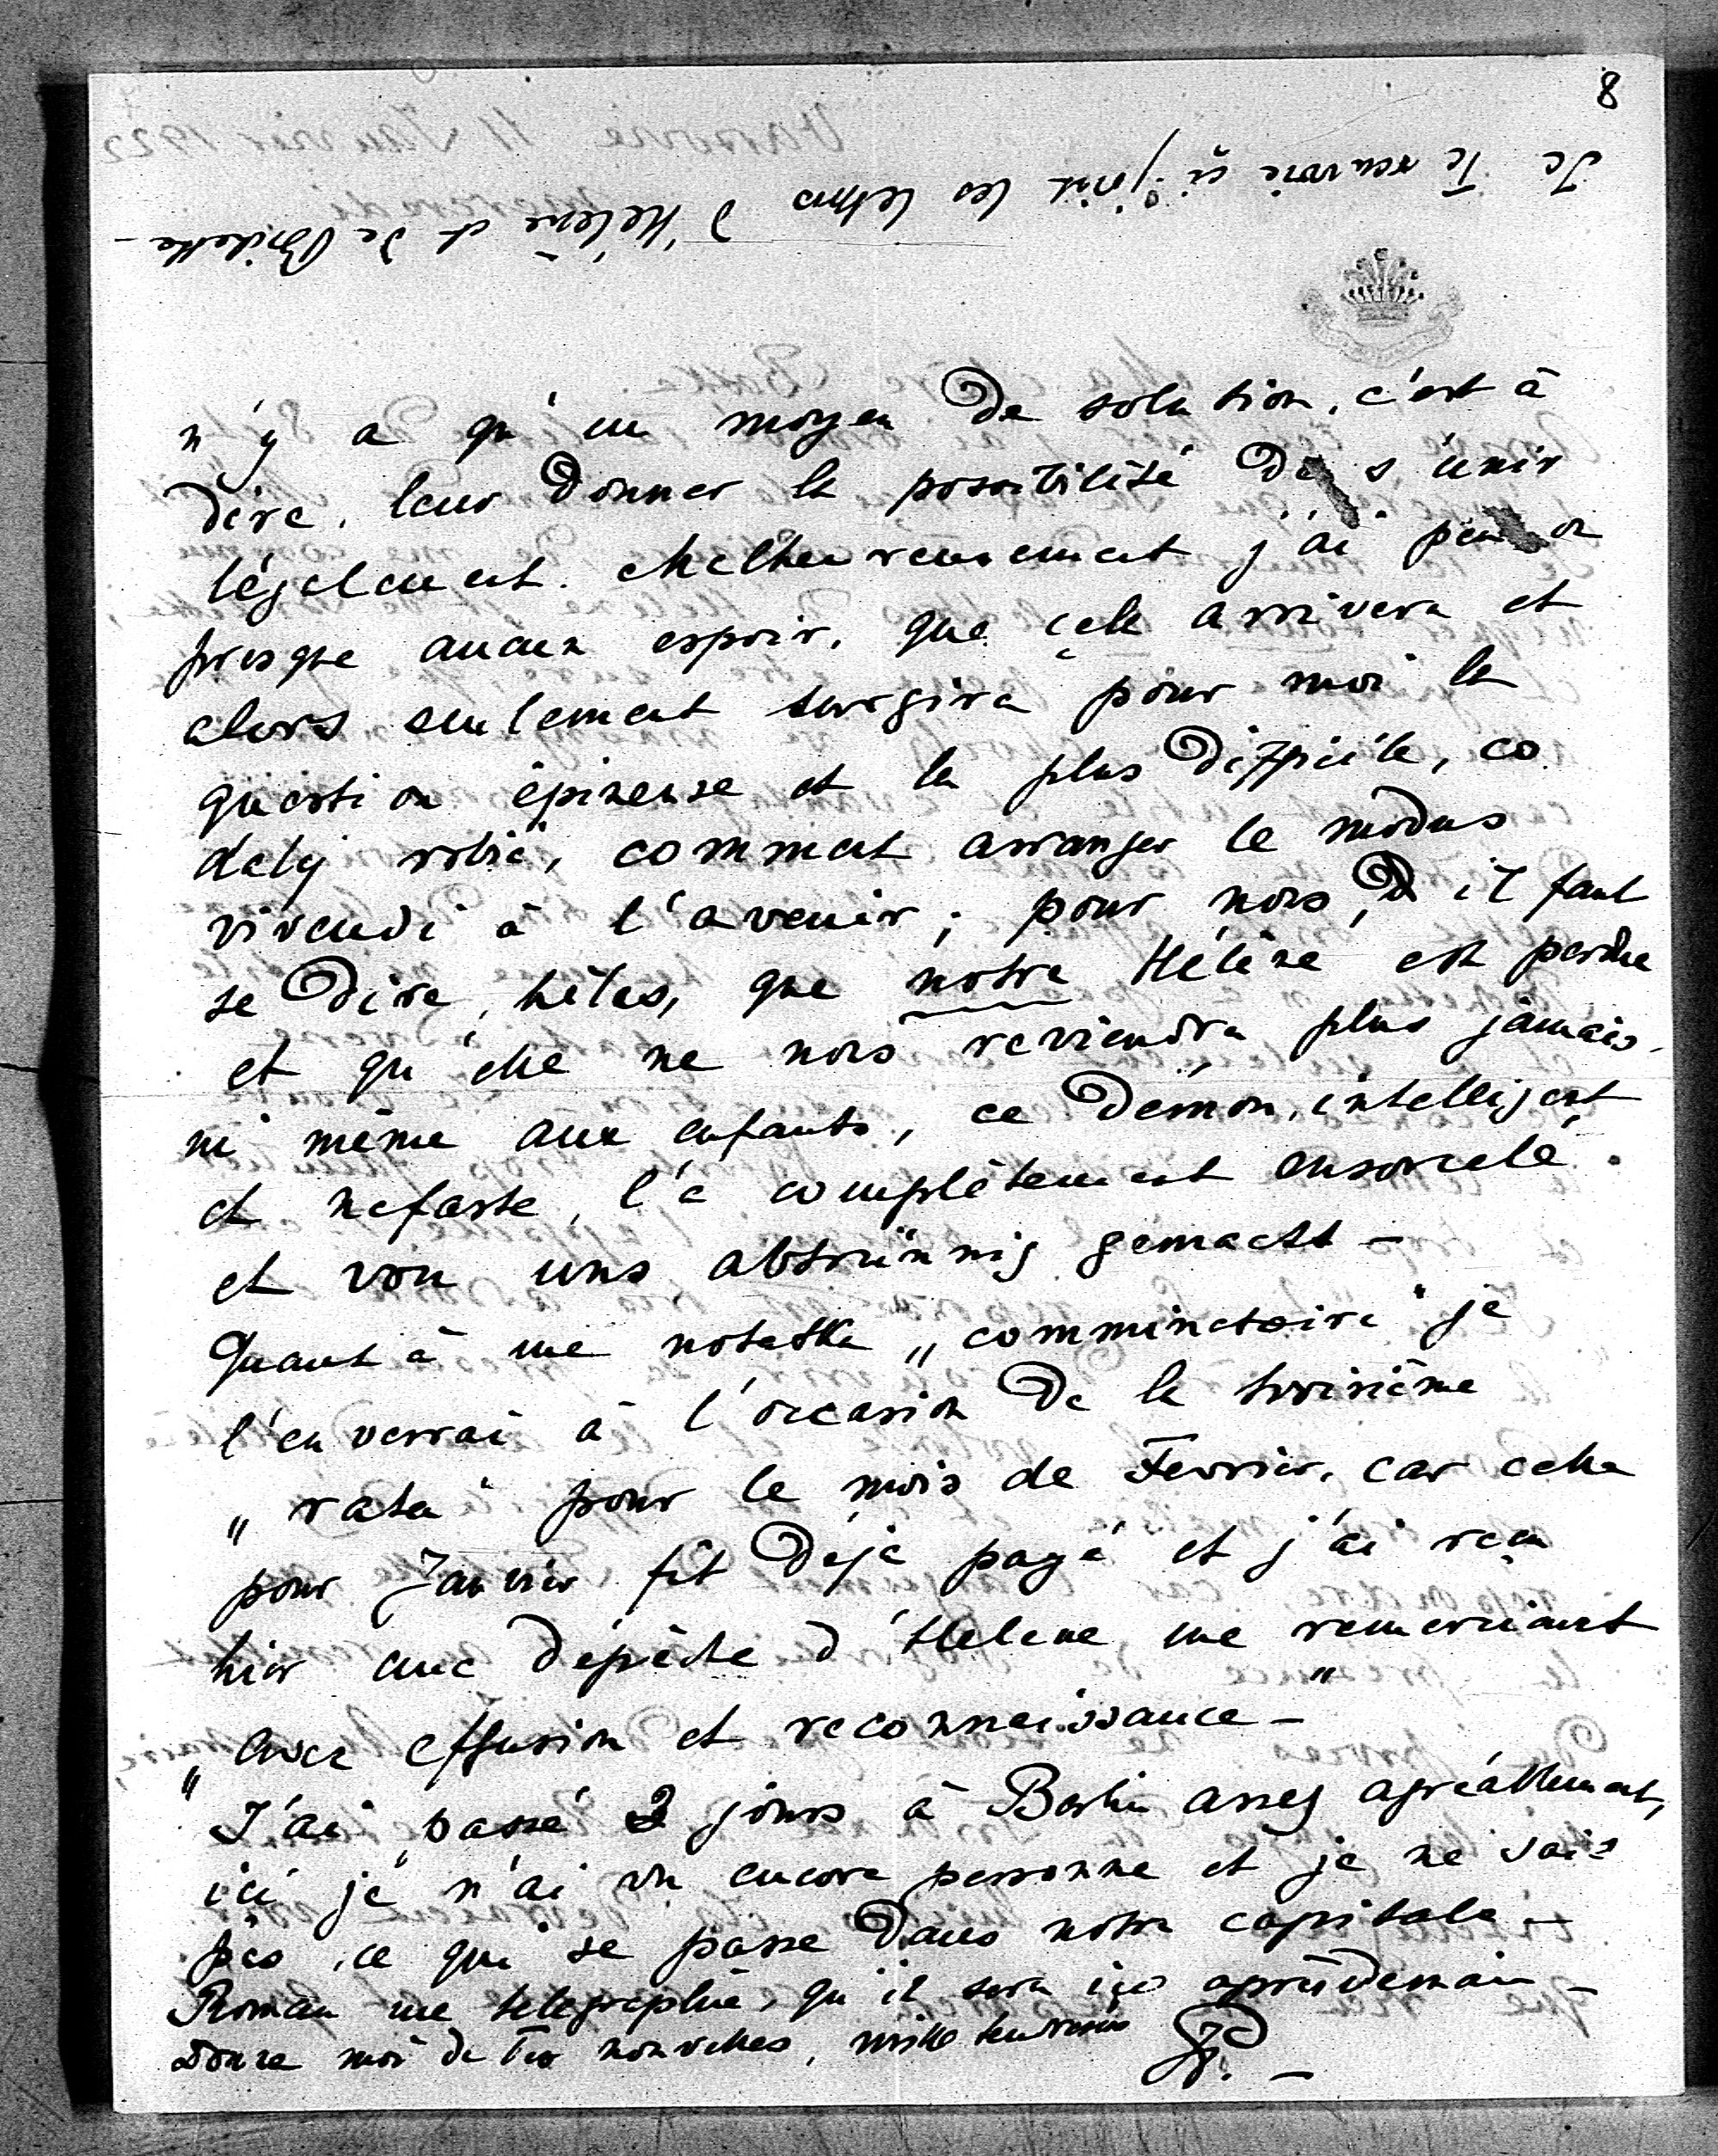 8
Je Te renvoie ci-joint les lettres d'Hélène et de
n'y a qu'un moyen de solution, c'est à
dire, leur donner la possibilité de s'unir
légalement. Malheureusement j'ai peu ou
presque aucun espoir, que celà arrivera et
alors seulement surgira pour moi la
question épineuse et la plus difficile, co
dalej robić, comment arranger le modus
vivendi à l'avenir; pour nous, il faut
se dire, hélas, que notre Hélène est perdue
et qu'elle ne nous reviendra plus jamais
ni même aux enfants, ce démon, intelligent
et nefaste, l'a complètement ensorcelé
et von uns abtrünnig gemacht –
Quant à ma notatka „comminatoire" je
l'enverrai à l'occasion de la troisième
„rata" pour le mois de Fevrier, car celle
pour Janvier fût déjà payé et j'ai reçu
hier une dépêche d'Helene, me remerciant
„avec effusion et reconnaissance" –
J'ai passé 2 jours à Berlin assez agréablement,
ici je n'ai vu encore personne et je ne sais
pas, ce qui se passe dans notre capitale –
Roman me telegraphie, qu'il sera ici après demain –
Donne moi de Tes nouvelles, mille tendresses